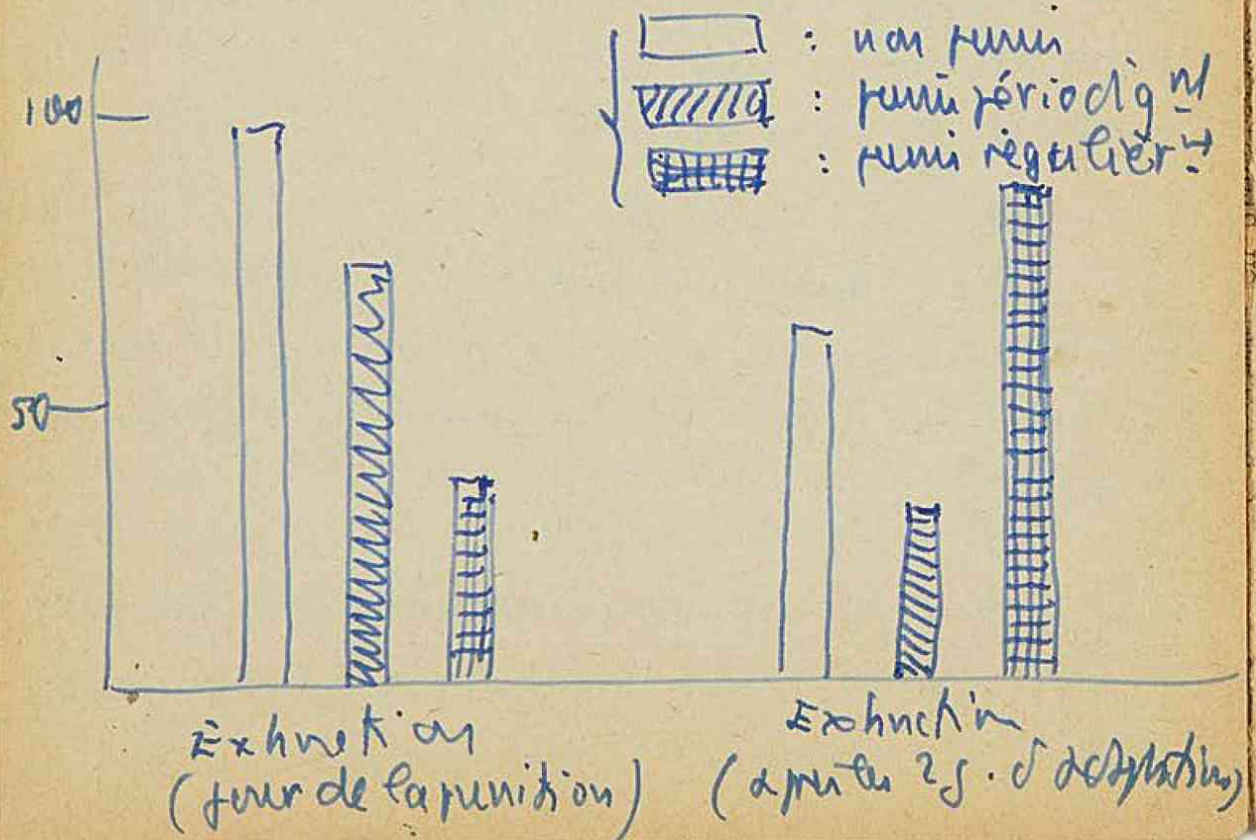 : non puni
100
: puni périodiq nt
: puni régulièr nt
50
Extinction
(jour de la punition)
Extinction
(après les 2 j. d'adaptation)